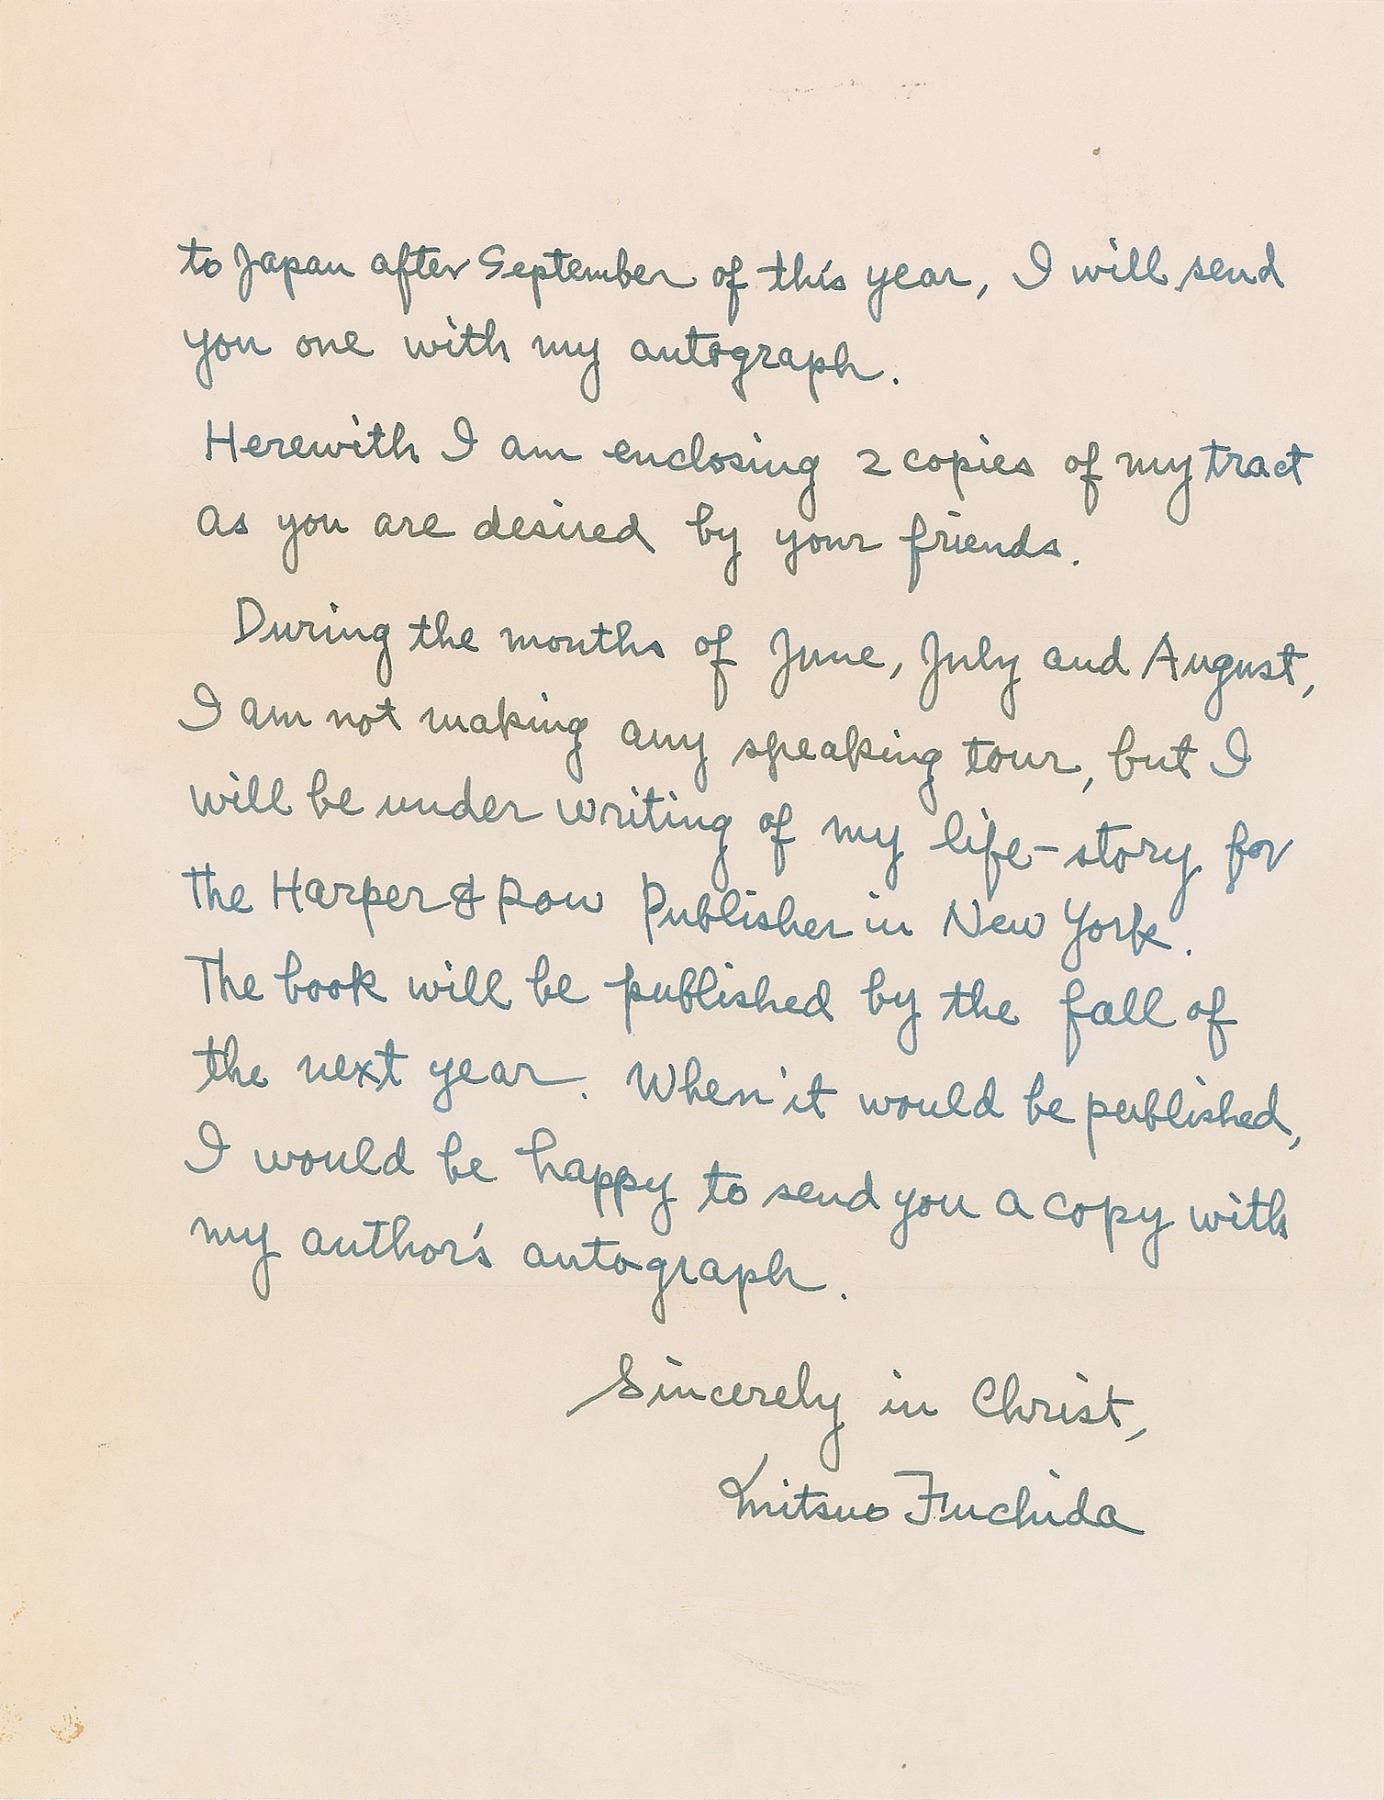 to Japan after September of this year, I will send
you one with my autograph.
Herewith I am enclosing 2 copies of my tract
as you are desired by your friends.
During the months of June, July and August,
I am not making any speaking tour, but I
will be under writing of my life-story for
the Harper & Row Publisher in New York.
The book will be published by the fall of
the next year. When it would be published,
I would be happy to send you a copy with
my author's autograph.
Sincerely in Christ,
Mitsuo Fuchida